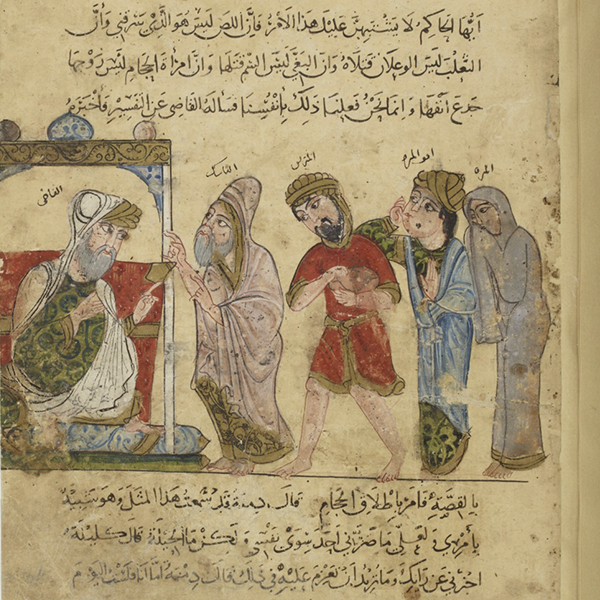 ايها الحاكم لا يشتبهن عليك هذا الامر فان اللص ليس هو الذي سرقني وان
الثعلب ليس الوعلان قتلاه وان البغي ليس السم قتلها وان امراة الحجام ليس زوجها
جدع انفها وانما نحن فعلنا ذلك بانفسنا فساله القاضي عن التفسير فاخبره
المره
اخو المره
المزين
الناسك
القاضي
بالقصة فامر باطلاق الحجام قال دمنة قد سمعت هذا المثل وهو شبيه
بامري ولعلي ما ضرني احد سوى نفسي ولكن ما الحيلة قال كليلة
اخبرني عن رايك وما تريد ان تعزم عليه في ذلك قال دمنه اما انا فلست اليوم